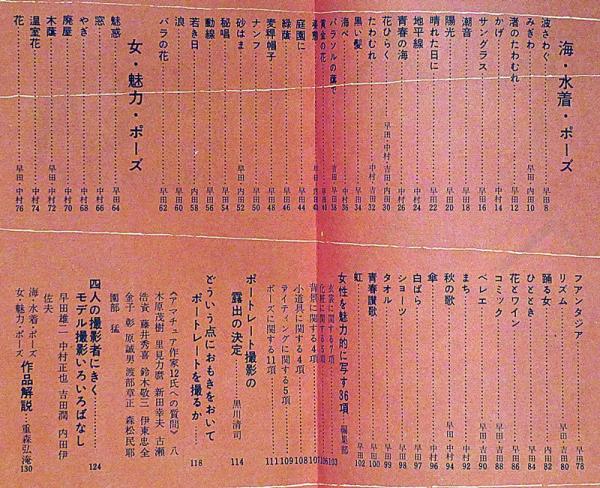 海・水着・ポーズ
波さわぐ……早田 8
みぎわ……早田・内田 10
渚のたわむれ……早田・吉田 12
かげ……早田・中村 14
サングラス……早田 16
潮音……早田・吉田 18
陽光……早田 20
晴れた日に……早田 22
地平線……早田・中村 24
青春の海……早田・中村 26
花ひらく……早田・中村・吉田・内田 30
たわむれ……早田・中村・吉田 32
黒い髪……早田・内田 34
海べ……早田・中村 36
パラソルの蔭で……吉田・早田 38
黄金の花……早田 41
海愁……早田・内田
庭園に……早田 44
緑蔭……早田 46
麦稈帽子……早田 48
ナンフ……早田 50
砂はま……早田・内田 52
秘唱……早田 54
動線……早田 56
若き日……内田 58
浪……早田 60
バラの花……早田 62
女・魅力・ポーズ
魅惑……早田 64
窓……中村 66
やぎ……中村 68
廃屋……中村 70
木蔭……早田・中村 72
温室花……中村 74
花……早田・中村 76
フアンタジア……早田 78
リズム……早田・吉田 80
踊る女……内田 82
ひととき……早田 84
花とワイン……早田 86
コミック……早田・吉田 88
ベレエ……早田・吉田 90
まち……中村 92
秋の歌……早田・中村 94
傘……中村 96
白ばら……早田 97
ショーツ……早田・吉田 98
タオル……早田 99
青春讃歌……早田 100
虹……早田 102
女性を魅力的に写す36項 編集部 103
衣裳に関する7項
化粧に関する5項 106
背景に関する4項 107
小道具に関する4項 108
ライティングに関する5項 109
ポーズに関する11項 111
ポートレート撮影の
露出の決定……黒川清司 114
どういう点におもきをおいて
ポートレートを撮るか…… 118
《アマチュア作家12氏への質問》 八
木原茂樹 里見力麿 新田幸夫 古瀬
浩資 藤井秀喜 鈴木敬三 伊東忠全
金子彰 原誠男 渡部章正 森松民耶
園部猛
四人の撮影者にきく……
モデル撮影いろいろばなし 124
早田雄二 中村正也 吉田潤 内田伊
佐夫
海・水着・ポーズ
女・魅力・ポーズ
作品解説……重森弘淹 130